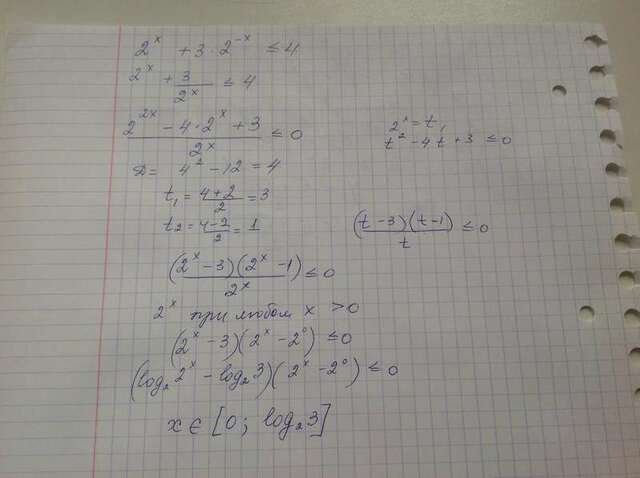 2^x + 3 · 2^-x ≤ 4
2^x + 3/2^x ≤ 4
(2^2x - 4 · 2^x + 3)/2^x ≤ 0
2^x = t,
t^2 - 4t + 3 ≤ 0
D = 4^2 - 12 = 4
t₁ = (4+2)/2 = 3
t₂ = (4-2)/2 = 1
(t-3)(t-1)/t ≤ 0
(2^x - 3)(2^x - 1)/2^x ≤ 0
2^x при любом x > 0
(2^x - 3)(2^x - 2^0) ≤ 0
(log₂ 2^x - log₂ 3)(2^x - 2^0) ≤ 0
x ∈ [0; log₂ 3]